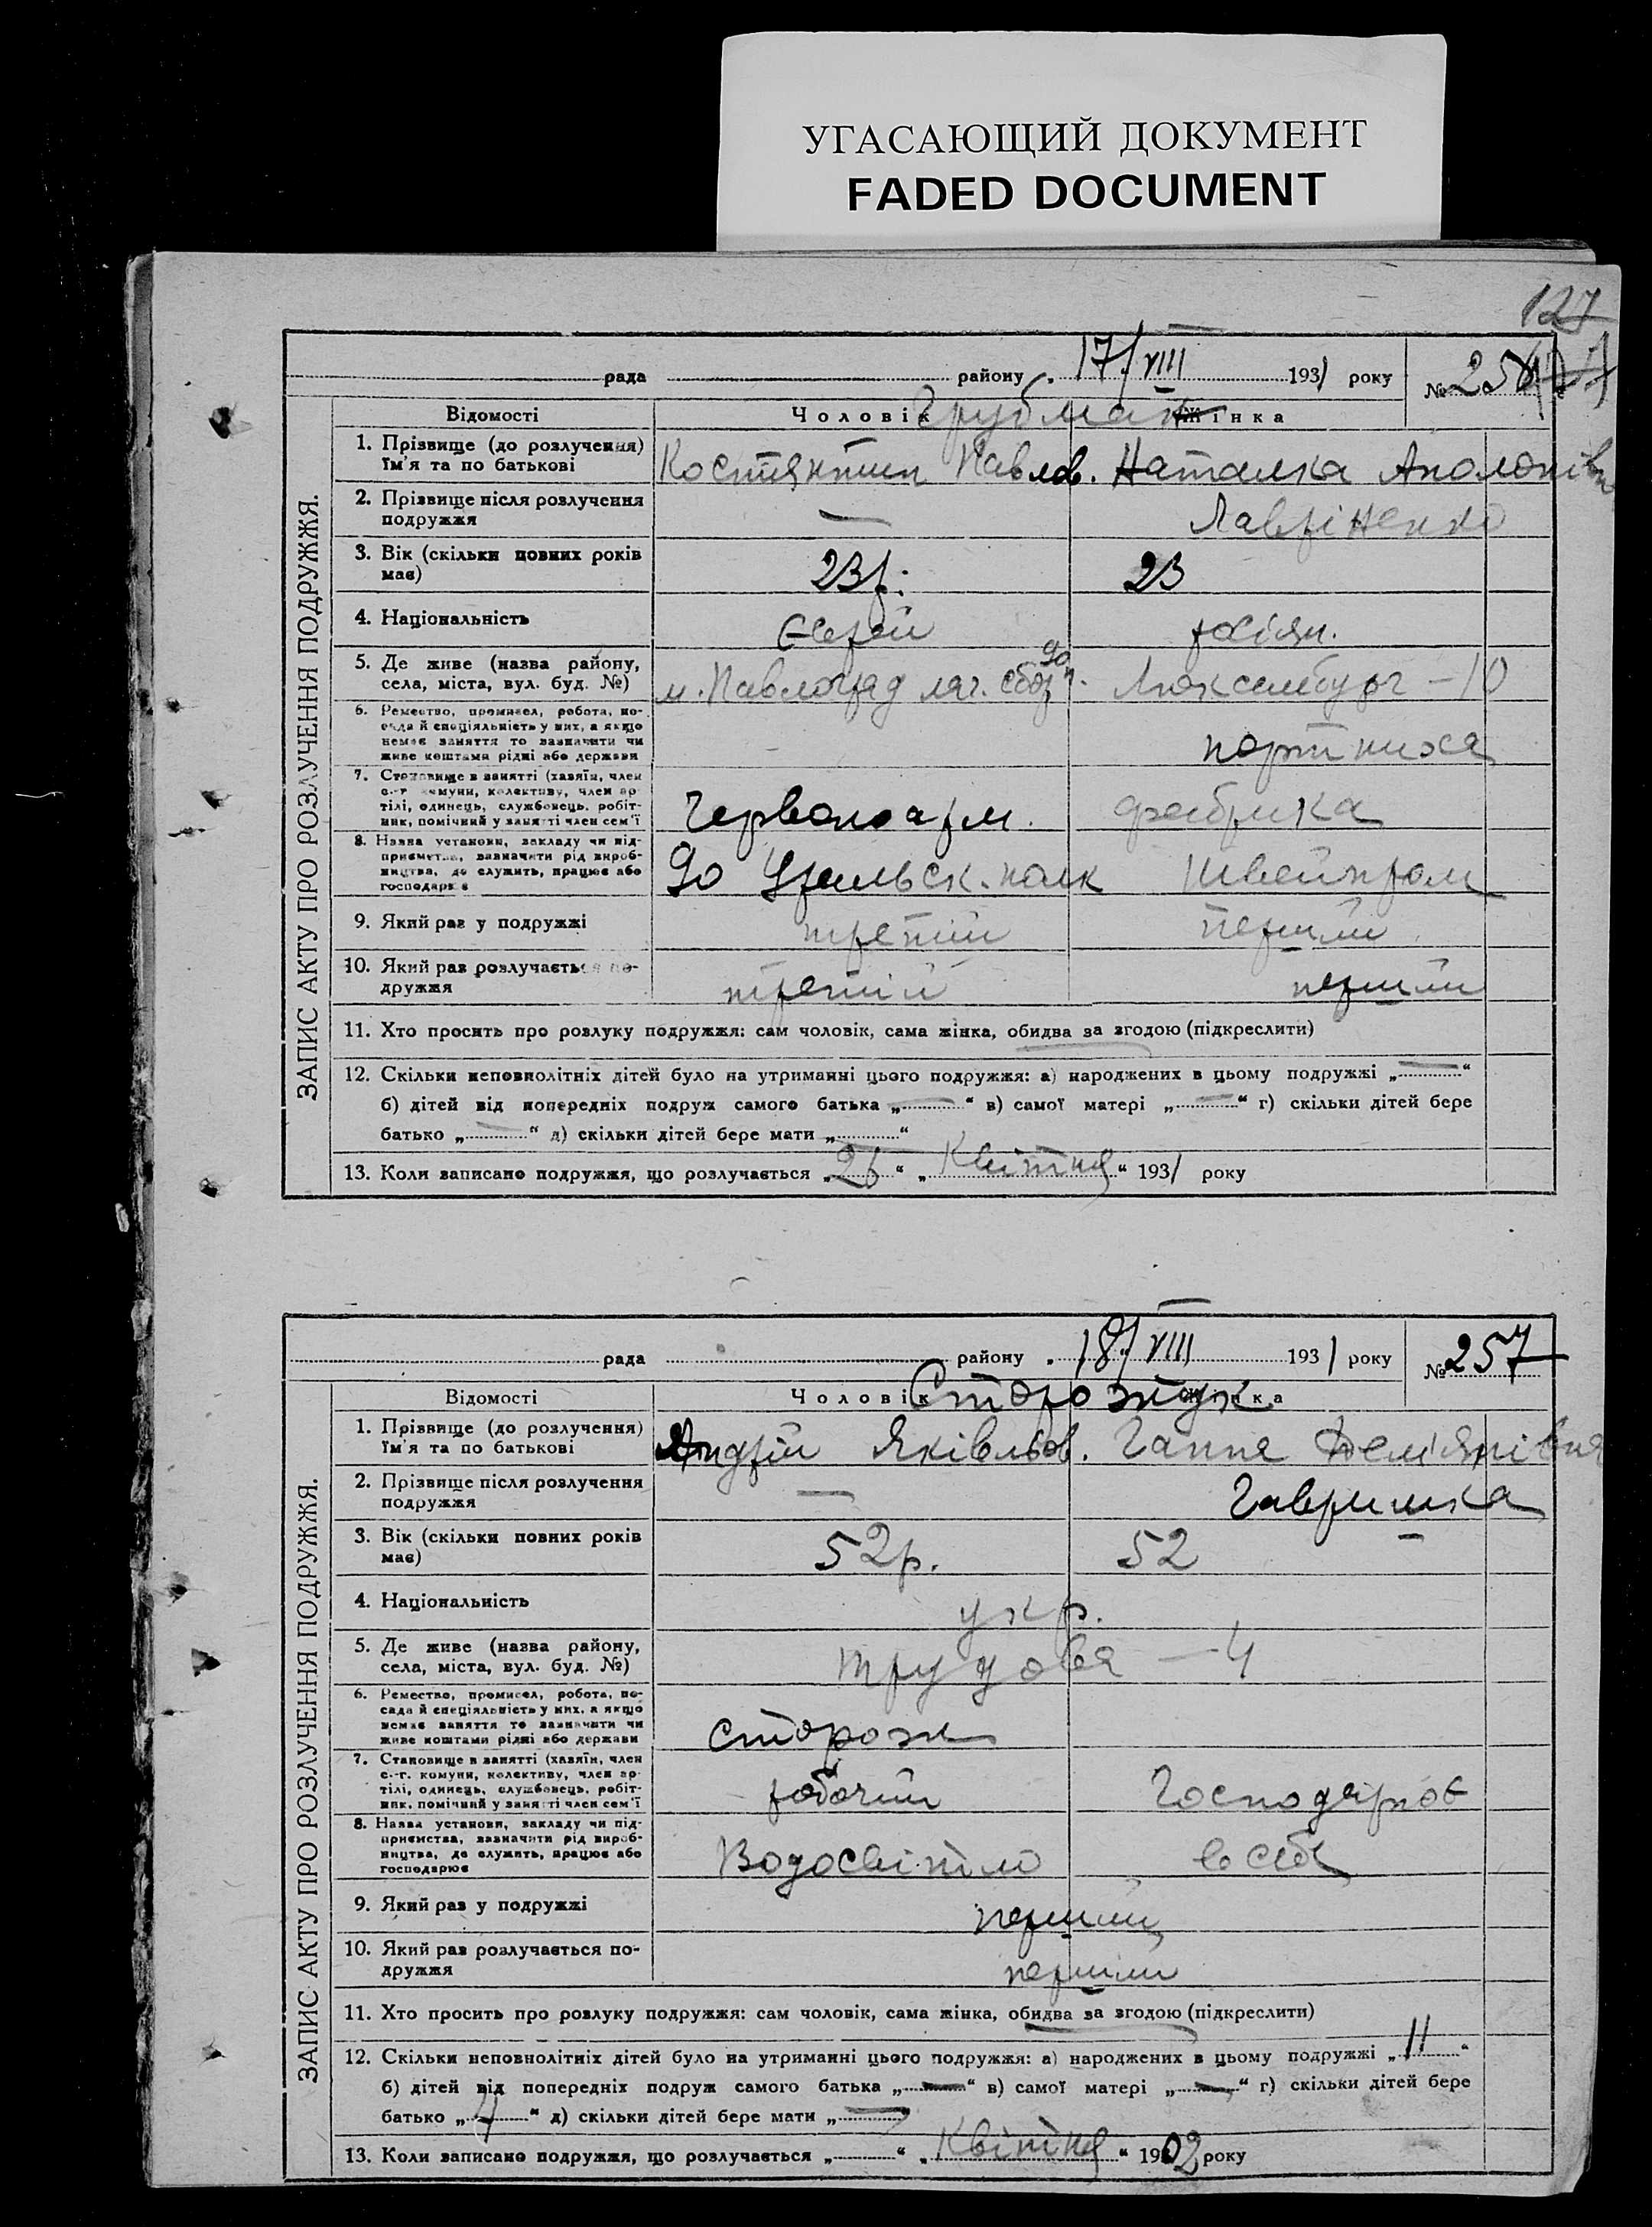 УГАСАЮЩИЙ ДОКУМЕНТ
FADED DOCUMENT
127
рада района „ 17/VIII 1931 року № 256
Відомості Чоловік Жінка
Грубман
1. Прізвище (до розлучення) Ім'я та по батькові Костянтин Павлов. Наталка Аполонівн
2. Прізвище після розлучення подружжя — Лавріненко
3. Вік (скільки повних років має) 23 р. 23
4. Національність Єврей росіян.
5. Де живе (назва району, села, міста, вул. буд. №) м. Павлоград Люксембург – 10
6. Ремество, промисел, робота, посада й спеціяльність у них, а якщо немає заняття то зазначити чи живе коштами рідні або держави – портниха
7. Становище в занятті (хазяїн, член с.-г. комуни, колективу, член артілі, одинець, службовець, робітник, помічний у занятті член сем'ї Червоноарм. фабрика
8. Назва установи, закладу чи підприємства, зазначити рід виробництва, де служить, працює або господарює 90 Уральск. полк Швейпром
9. Який раз у подружжі третій перший
10. Який раз розлучається подружжя третій перший
11. Хто просить про розлуку подружжя: сам чоловік, сама жінка, обидва за згодою (підкреслити)
12. Скільки неповнолітніх дітей було на утриманні цього подружжя: а) народжених в цьому подружжі „—“
б) дітей від попередніх подруж самого батька „—“ в) самої матері „—“ г) скільки дітей бере
батько „—“ д) скільки дітей бере мати „—“
13. Коли записано подружжя, що розлучається „26“ „Квітня“ 1931 року
ЗАПИС АКТУ ПРО РОЗЛУЧЕННЯ ПОДРУЖЖЯ.
рада району „ 18/VIII 1931 року № 257
Відомості Чоловік Жінка
Сторожук
1. Прізвище (до розлучення) Ім'я та по батькові Андрій Яківльов. Ганна Дем'янівна
2. Прізвище після розлучення подружжя — Гавришка
3. Вік (скільки повних років має) 52 р. 52
4. Національність укр.
5. Де живе (назва району, села, міста, вул. буд. №) Трудова – 4
6. Ремество, промисел, робота, посада й спеціяльність у них, а якщо немає заняття то зазначити чи живе коштами рідні або держави сторож
7. Становище в занятті (хазяїн, член с.-г. комуни, колективу, член артілі, одинець, службовець, робітник, помічний у занятті член сем'ї робочий Господарює
8. Назва установи, закладу чи підприємства, зазначити рід виробництва, де служить, працює або господарює Водосвітло в себе
9. Який раз у подружжі перший
10. Який раз розлучається подружжя перший
11. Хто просить про розлуку подружжя: сам чоловік, сама жінка, обидва за згодою (підкреслити)
12. Скільки неповнолітніх дітей було на утриманні цього подружжя: а) народжених в цьому подружжі „11“
б) дітей від попередніх подруж самого батька „—“ в) самої матері „—“ г) скільки дітей бере
батько „4“ д) скільки дітей бере мати „—“
13. Коли записано подружжя, що розлучається „ “ „Квітня“ 1902 року
ЗАПИС АКТУ ПРО РОЗЛУЧЕННЯ ПОДРУЖЖЯ.